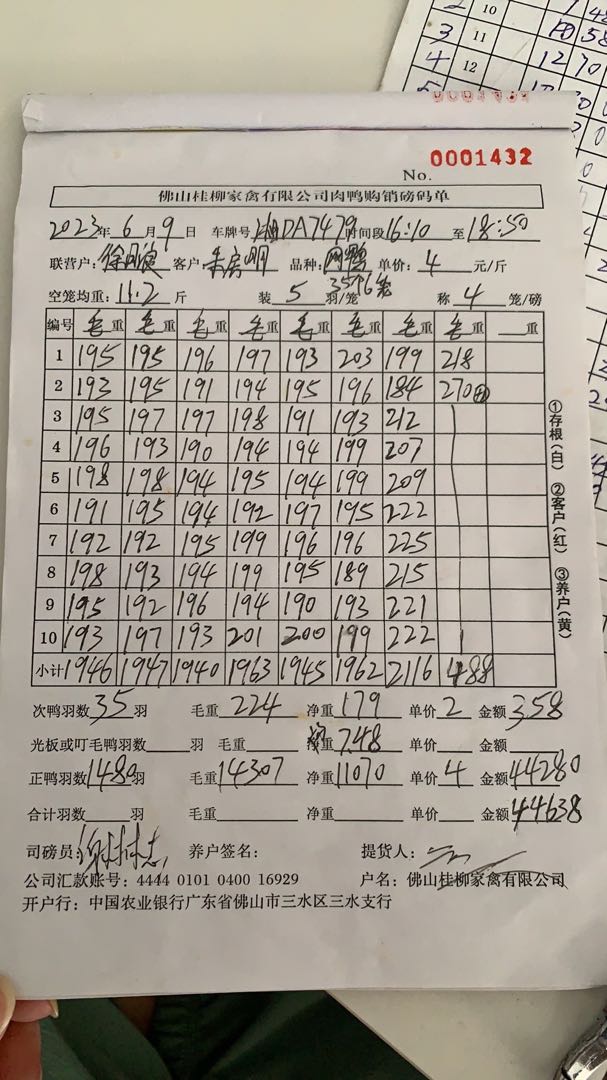 2
10
1
48
3
11
10
58
4
12
12
70
No. 0001432
佛山桂柳家禽有限公司肉鸭购销磅码单
2023年6月9日 车牌号湘DA7479时间段16:10至18:50
联营户: 客户 品种: 单价: 4 元/斤
空笼均重: 11.2 斤 装 5 羽/笼 称 4 笼/磅
编号 毛重 毛重 毛重 毛重 毛重 毛重 毛重 毛重 重
1 195 195 196 197 193 203 199 218
2 193 195 191 194 195 196 184 270
3 195 197 197 198 191 193 212
4 196 193 190 194 194 199 207
5 198 198 194 195 194 199 209
6 191 195 194 192 197 195 222
7 192 192 195 199 196 196 225
8 198 193 194 199 195 189 215
9 195 192 196 194 190 193 221
10 193 197 193 201 200 199 222
小计 1946 1947 1940 1963 1945 1962 2116 488
①存根(白) ②客户(红) ③养户(黄)
次鸭羽数35羽 毛重 224 净重 179 单价 2 金额 358
光板或叮毛鸭羽数 羽 毛重 净重 7.48 单价 金额
正鸭羽数1480羽 毛重14307 净重11070 单价 4 金额44280
合计羽数 羽 毛重 净重 单价 金额44638
司磅员: 养户签名: 提货人:
公司汇款账号: 4444 0101 0400 16929 户名: 佛山桂柳家禽有限公司
开户行: 中国农业银行广东省佛山市三水区三水支行